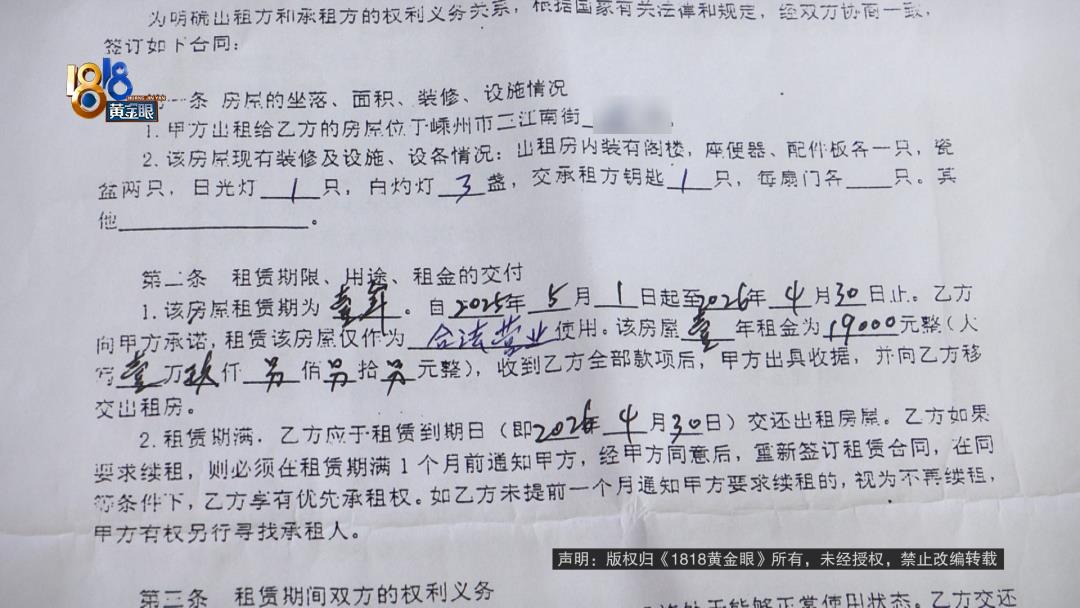 为明确出租方和承租方的权利义务关系，根据国家有关法律和规定，经双方协商一致，
签订如下合同：
1818
黄金眼
一条 房屋的坐落、面积、装修、设施情况
1. 甲方出租给乙方的房屋位于嵊州市三江南街
2. 该房屋现有装修及设施、设备情况：出租房内装有阁楼，座便器、配件板各一只，瓷
盆两只，日光灯 1 只，白灼灯 3 盏，交承租方钥匙 1 只，每扇门各____只。其
他____________。
第二条 租赁期限、用途、租金的交付
1. 该房屋租赁期为 壹年 。自 2025年 5 月 1 日起至2026年 4 月30日止。乙方
向甲方承诺，租赁该房屋仅作为 合法营业 使用。该房屋 壹 年租金为 19000元整（大
写 壹 万玖仟 另 佰 另 拾 另 元整），收到乙方全部款项后，甲方出具收据，并向乙方移
交出租房。
2. 租赁期满．乙方应于租赁到期日（即2026年 4 月30日）交还出租房屋。乙方如果
要求续租，则必须在租赁期满 1 个月前通知甲方，经甲方同意后，重新签订租赁合同，在同
等条件下，乙方享有优先承租权。如乙方未提前一个月通知甲方要求续租的，视为不再续租，
甲方有权另行寻找承租人。
声明：版权归《1818黄金眼》所有，未经授权，禁止改编转载
第三条 租赁期间双方的权利义务
能够正常使用状态。乙方交还